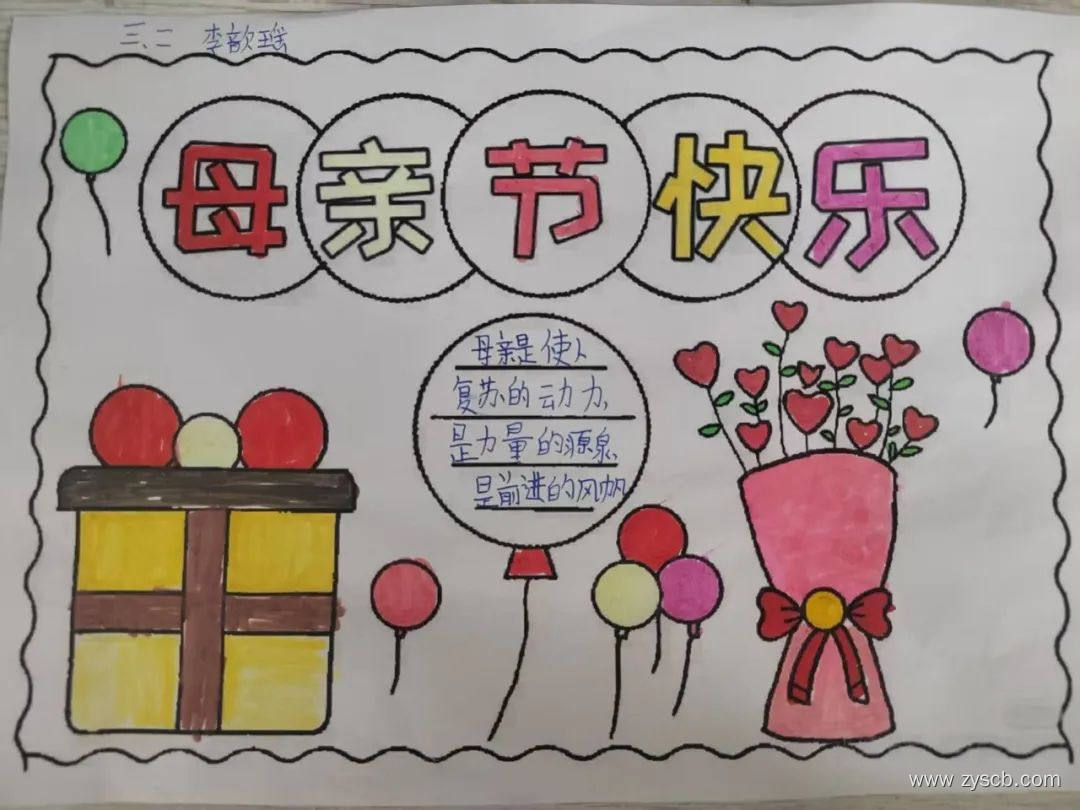 三、二 李歆瑶
母亲节快乐
母亲是使人
复苏的动力,
是力量的源泉,
是前进的风帆
www.zyscb.com